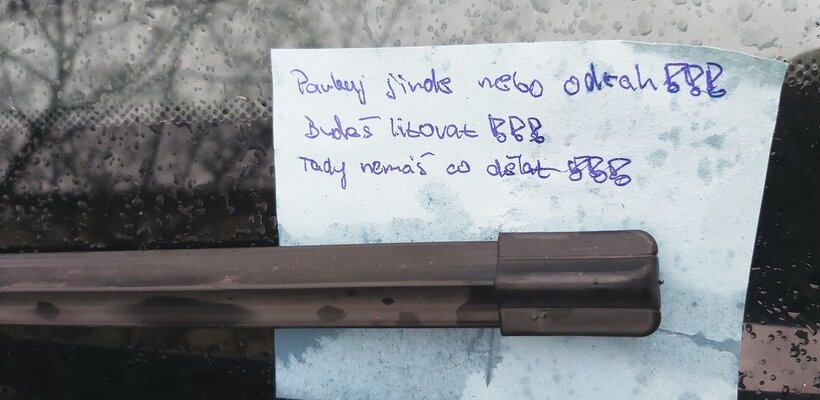 Parkuj jinde nebo odtah !!!
Budeš litovat !!!
Tady nemáš co dělat !!!